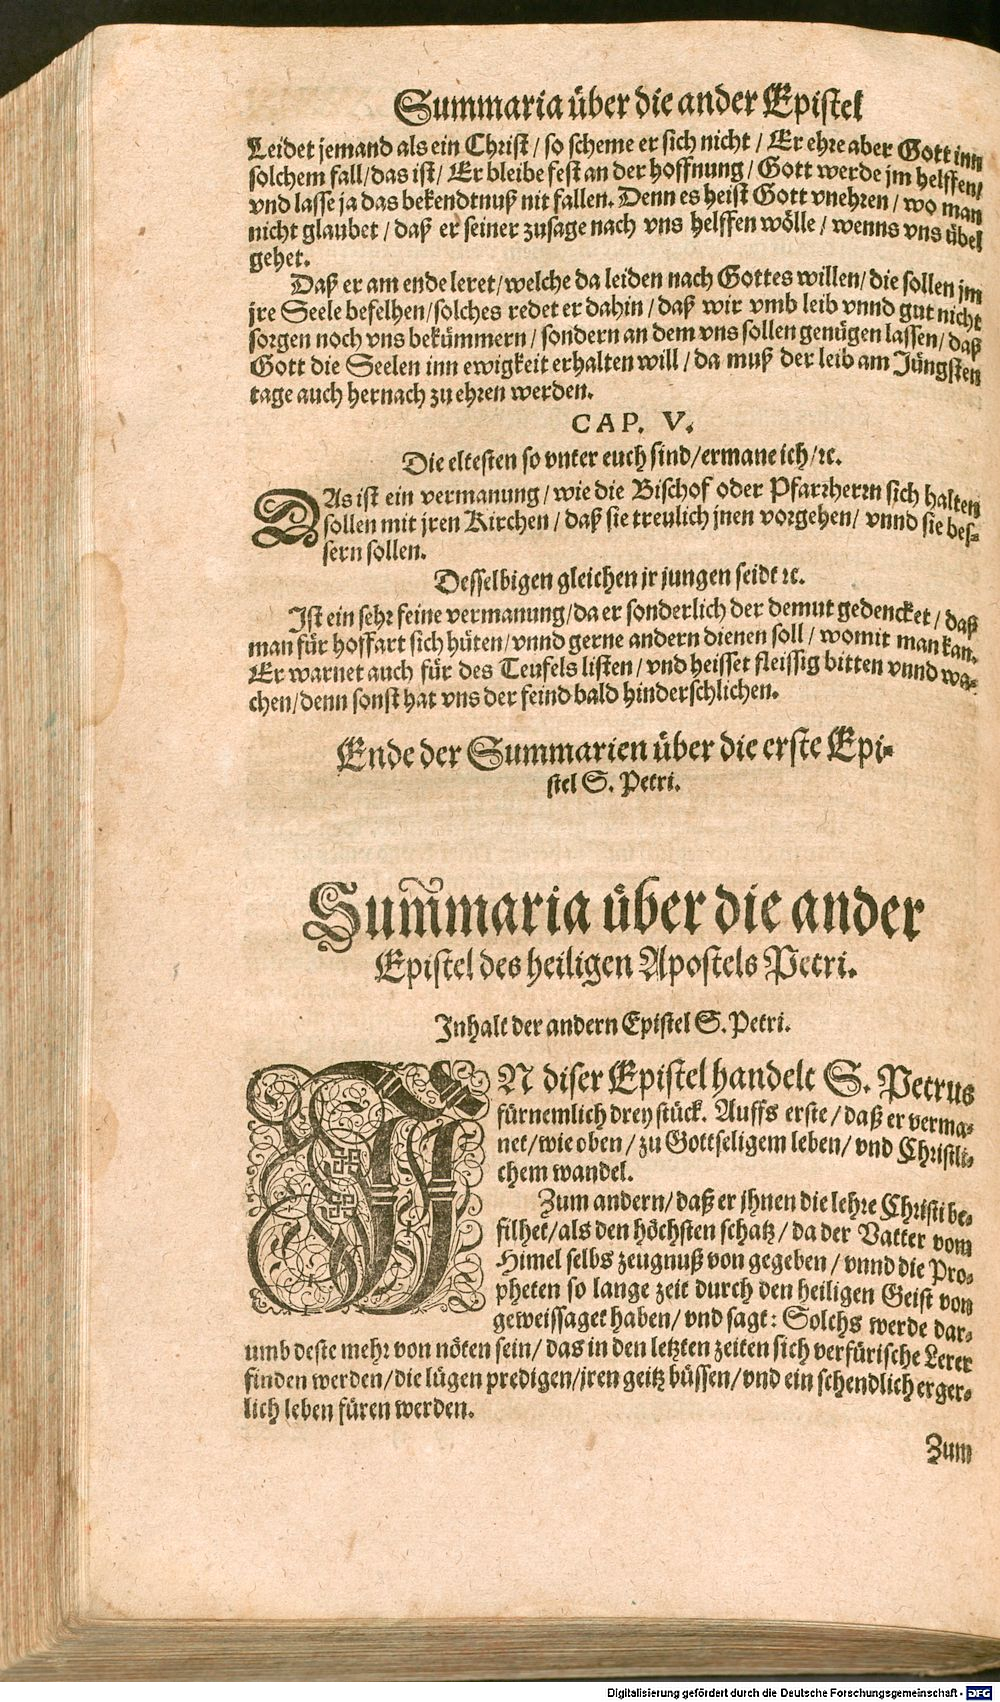 Summaria über die ander Epistel
Leidet jemand als ein Christ / so scheme er sich nicht / Er ehre aber Gott inn
solchem fall / das ist / Er bleibe fest an der hoffnung / Gott werde jm helffen /
vnd lasse ja das bekendtnuß nit fallen. Denn es heist Gott vnehren / wo man
nicht glaubet / daß er seiner zusage nach vns helffen wölle / wenns vns übel
gehet.
Daß er am ende leret / welche da leiden nach Gottes willen / die sollen jm
jre Seele befelhen / solches redet er dahin / daß wir vmb leib vnnd gut nicht
sorgen noch vns bekümmern / sondern an dem vns sollen genügen lassen / daß
Gott die Seelen inn ewigkeit erhalten will / da muß der leib am Jüngsten
tage auch hernach zu ehren werden.
CAP. V.
Die eltesten so vnter euch sind / ermane ich / ꝛc.
DAs ist ein vermanung / wie die Bischof oder Pfarrherrn sich halten
sollen mit jren Kirchen / daß sie treulich jnen vorgehen / vnnd sie bes-
sern sollen.
Desselbigen gleichen jr jungen seidt ꝛc.
Ist ein sehr feine vermanung / da er sonderlich der demut gedencket / daß
man für hoffart sich hüten / vnnd gerne andern dienen soll / womit man kan.
Er warnet auch für des Teufels listen / vnd heisset fleissig bitten vnnd wa-
chen / denn sonst hat vns der feind bald hinderschlichen.
Ende der Summarien über die erste Epi-
stel S. Petri.
Sum̃maria über die ander
Epistel des heiligen Apostels Petri.
Inhalt der andern Epistel S. Petri.
IN diser Epistel handelt S. Petrus
fürnemlich drey stück. Auffs erste / daß er verma-
net / wie oben / zu Gottseligem leben / vnd Christli-
chem wandel.
Zum andern / daß er jhnen die lehre Christi be-
filhet / als den höchsten schatz / da der Vatter vom
Himel selbs zeugnuß von gegeben / vnnd die Pro-
pheten so lange zeit durch den heiligen Geist von
geweissaget haben / vnd sagt: Solchs werde dar-
umb deste mehr von nöten sein / das in den letzten zeiten sich verfürische Lerer
finden werden / die lügen predigen / jren geitz büssen / vnd ein schendlich erger-
lich leben füren werden.
Zum
Digitalisierung gefördert durch die Deutsche Forschungsgemeinschaft - DFG